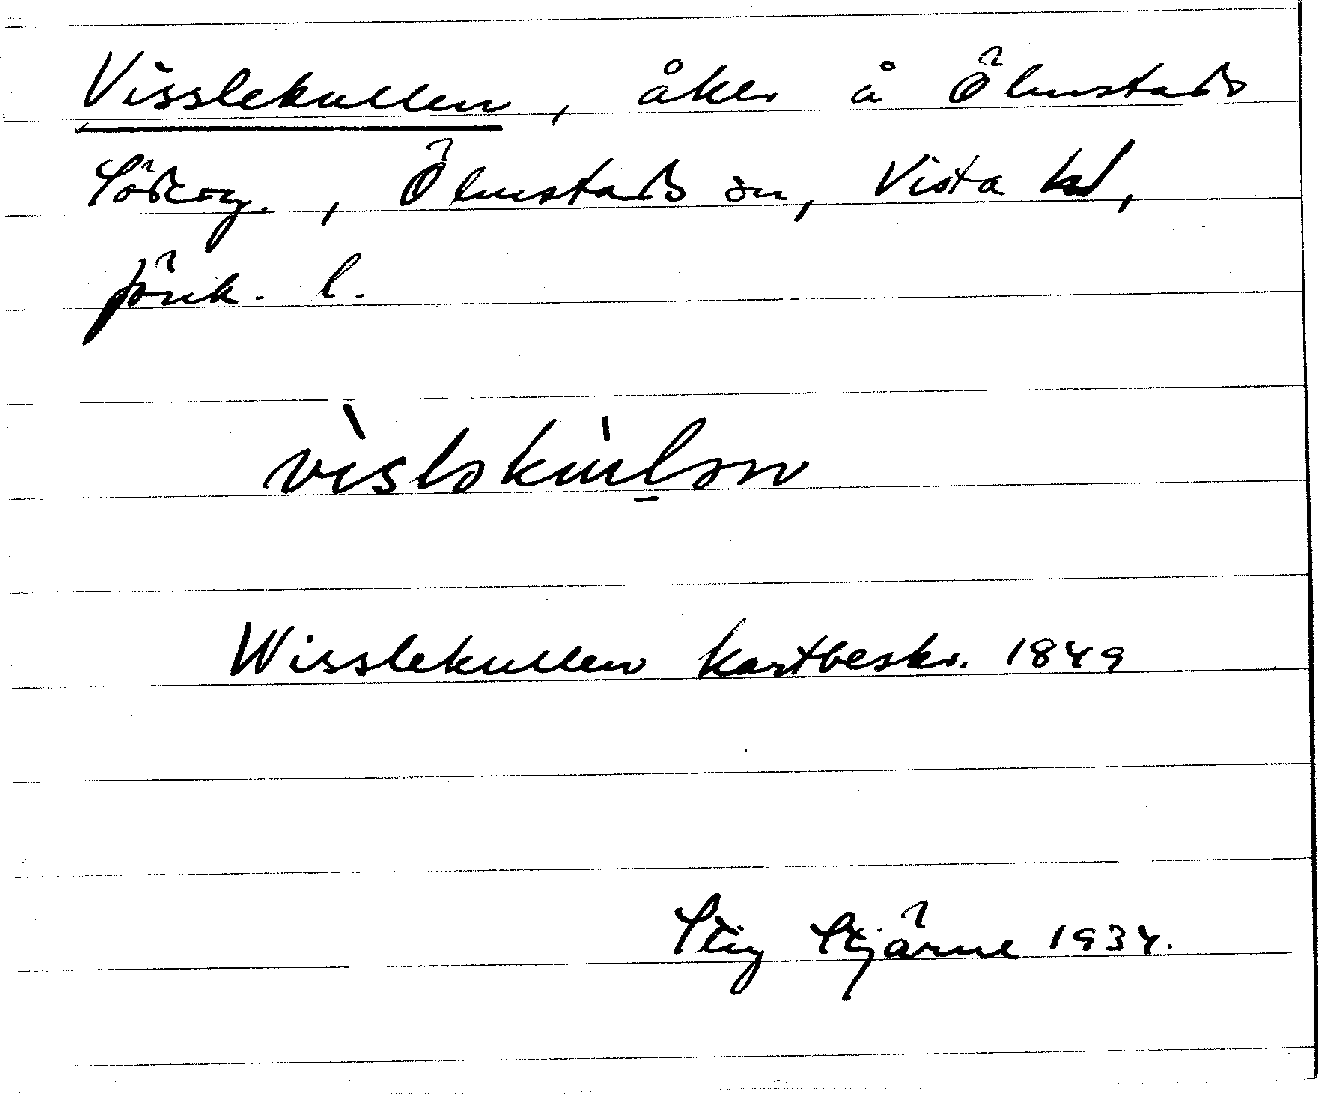 Visslekullen, åker å Ölmstads
Söderg., Ölmstads sn, Vista hd,
Jönk. l.
vìsləkùl̠ən
Wisslekullen kartbeskr. 1849
Stig Stjärne 1934.